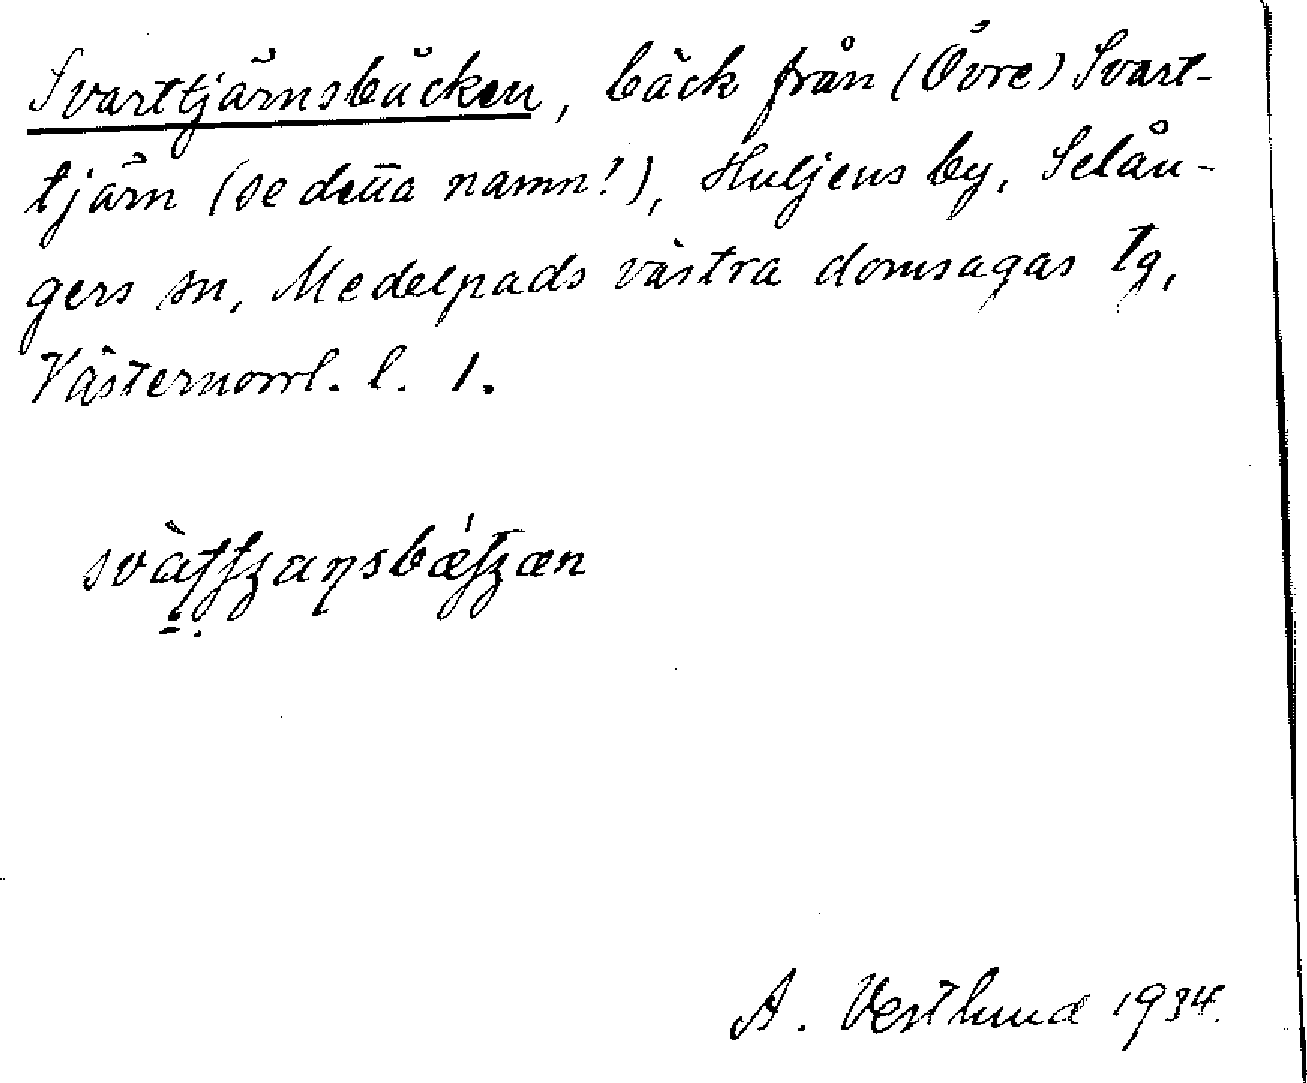 Svarttjärnsbäcken, bäck från (Övre) Svart-
tjärn (se detta namn!), Huljens by, Selån-
gers sn, Medelpads västra domsagas tg,
Västernorrl. l. 1.
A. Vestlund 1934.